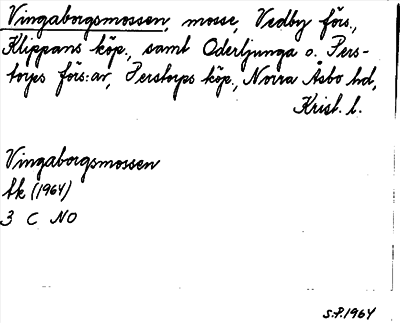 Vingaborgsmossen, mosse, Vedby förs.,
Klippans köp., samt Oderljunga o. Pers-
torps förs:ar, Perstorps köp., Norra Åsbo hd,
Krist. l.
Vingaborgsmossen
Ek (1964)
3 C NO
S.P. 1964